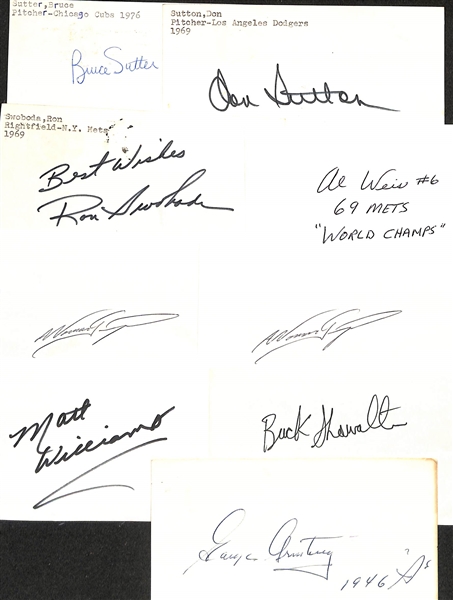 Sutter,Bruce
Pitcher-Chicago Cubs 1976
Bruce Sutter
Sutton,Don
Pitcher-Los Angeles Dodgers
1969
Don Sutton
Swoboda,Ron
Rightfield-N.Y. Mets
1969
Best Wishes
Ron Swoboda
Al Weis #6
69 METS
"WORLD CHAMPS"
Matt
Williams
Buck Showalter
George Armstrong
1946 "A's